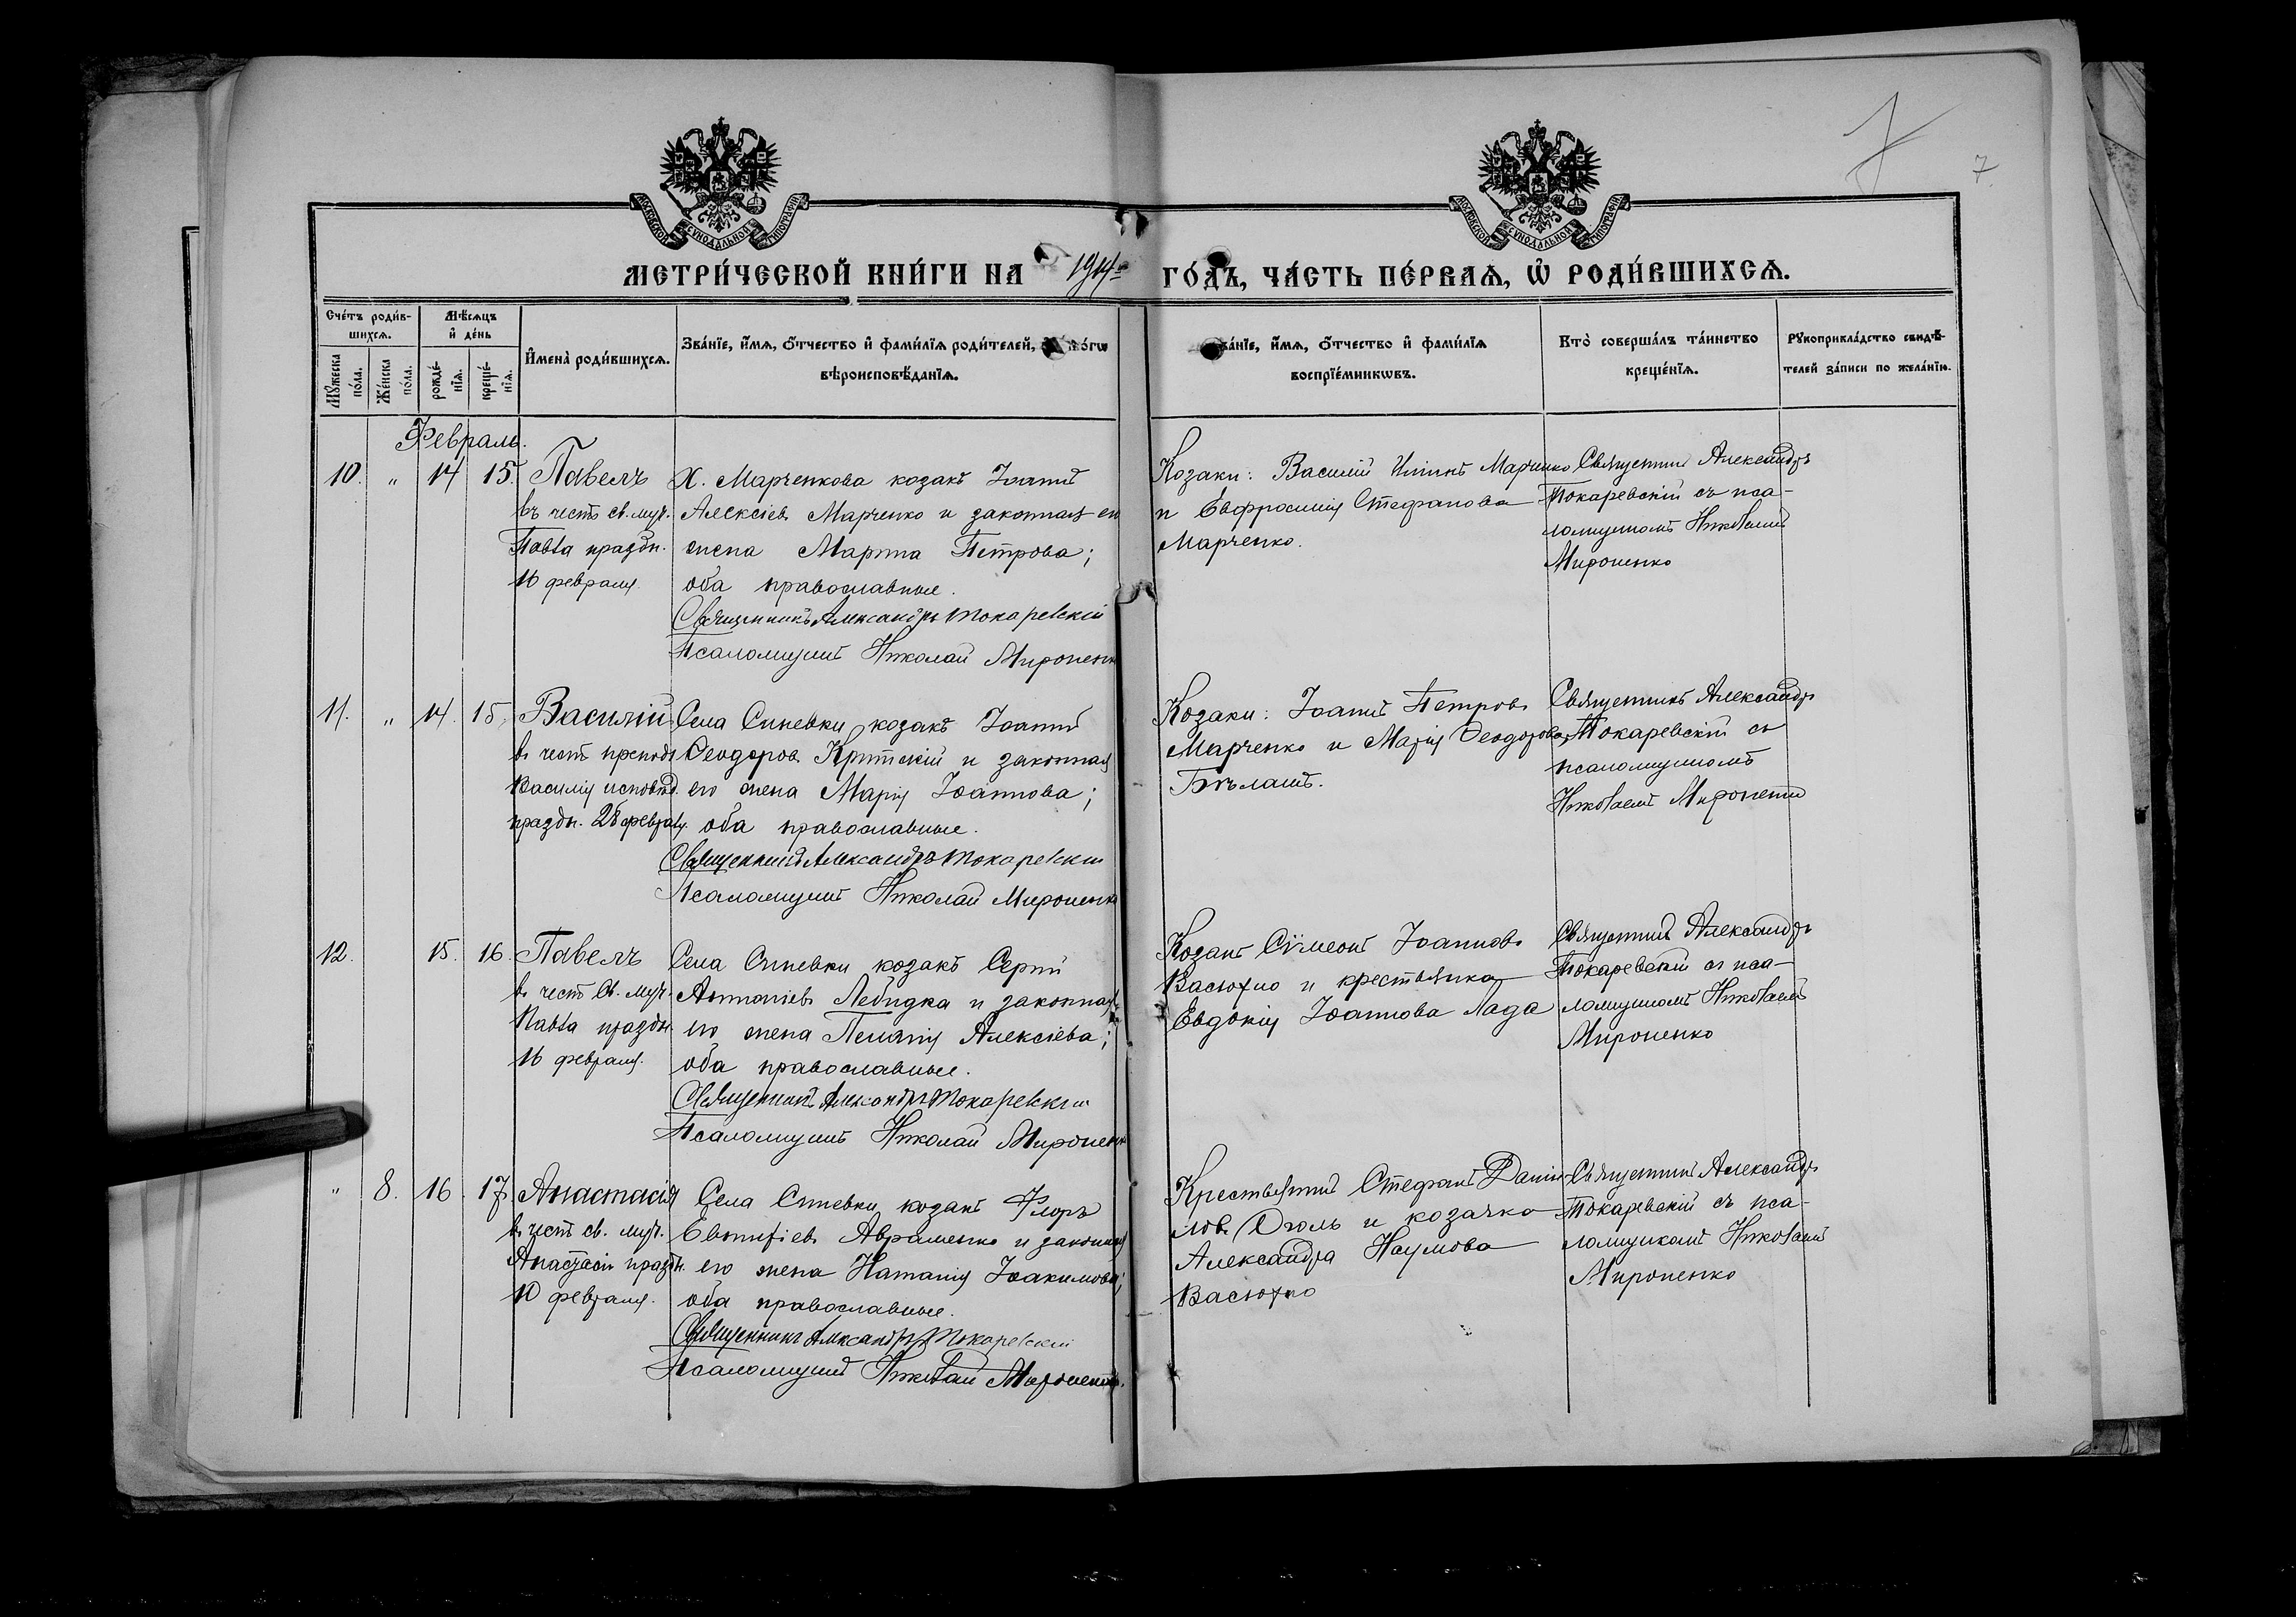 7
7.
МОСКОВСКОЙ СѴНОДАЛЬНОЙ ТИПОГРАФІИ
МОСКОВСКОЙ СѴНОДАЛЬНОЙ ТИПОГРАФІИ
МЕТРИ́ЧЕСКОЙ КНИ́ГИ НА 1914 ГО́ДЪ, ЧА́СТЬ ПЕ́РВАѦ, Ѡ҆ РОДИ́ВШИХСѦ.
Сче́тъ роди́в-
шихсѧ.
Мѣ́сѧцъ
и҆ де́нь
Мꙋ́жеска
по́ла.
Же́нска
по́ла.
рожде́-
нїѧ.
креще́-
нїѧ.
И҆мена̀ роди́вшихсѧ.
Зва́нїе, и҆́мѧ, ѻ҆́тчество и҆ фами́лїѧ роди́телей,
вѣроисповѣ́данїѧ.
и҆́мѧ, ѻ҆́тчество и҆ фами́лїѧ
воспрїе́мникѡвъ.
Кто̀ соверша́лъ та́инство
креще́нїѧ.
Рꙋкоприкла́дство свидѣ́-
телей за́писи по жела́нїю.
Февраль.
10. " 14 15. Павелъ
въ честь св. муч.
Павла праздн.
16 февраля.
Х. Марченкова козакъ Іоаннъ
Алексіевъ Марченко и законная его
жена Марина Петрова;
оба православные.
Священникъ Александръ Токаревскій
Псаломщикъ Николай Мироненко
Козаки: Василій Марченко
и Евфросинія Стефанова
Марченко.
Священникъ Александръ
Токаревскій съ пса-
ломщикомъ Николаемъ
Мироненко
11. " 14. 15. Василій
въ честь преподо
Василія исповѣд.
праздн. 28 февраля.
Села Синевки козакъ Іоаннъ
Ѳеодоровъ Критскій и законная
его жена Марія Іоаннова;
оба православные.
Священникъ Александръ Токаревскій
Псаломщикъ Николай Мироненко
Козаки: Іоаннъ Петровъ
Марченко и Марія Ѳеодорова
Бѣлашъ.
Священникъ Александръ
Токаревскій съ
псаломщикомъ
Николаемъ Мироненко
12. 15. 16. Павелъ
въ честь Св. муч.
Павла праздн.
16 февраля.
Села Синевки козакъ Сергій
Антоніевъ Лебидка и законная
его жена Пелагія Алексіева;
оба православные.
Священникъ Александръ Токаревскій
Псаломщикъ Николай Мироненко
Козакъ Сѵмеонъ Іоанновъ
Васюхно и крестьянка
Евдокія Іоаннова Лада
Священникъ Александръ
Токаревскій съ пса-
ломщикомъ Николаемъ
Мироненко
" 8. 16. 17 Анастасія
въ честь св. муч.
Анастасіи праздн.
10 февраля.
Села Синевки козакъ Флоръ
Евтихіевъ Авраменко и законная
его жена Наталія Іоакимова;
оба православные.
Священникъ Александръ Токаревскій
Псаломщикъ Николай Мироненко.
Крестьянинъ Стефанъ Даніи-
ловъ и козачка
Александра Наумова
Васюхно
Священникъ Александръ
Токаревскій съ пса-
ломщикомъ Николаемъ
Мироненко